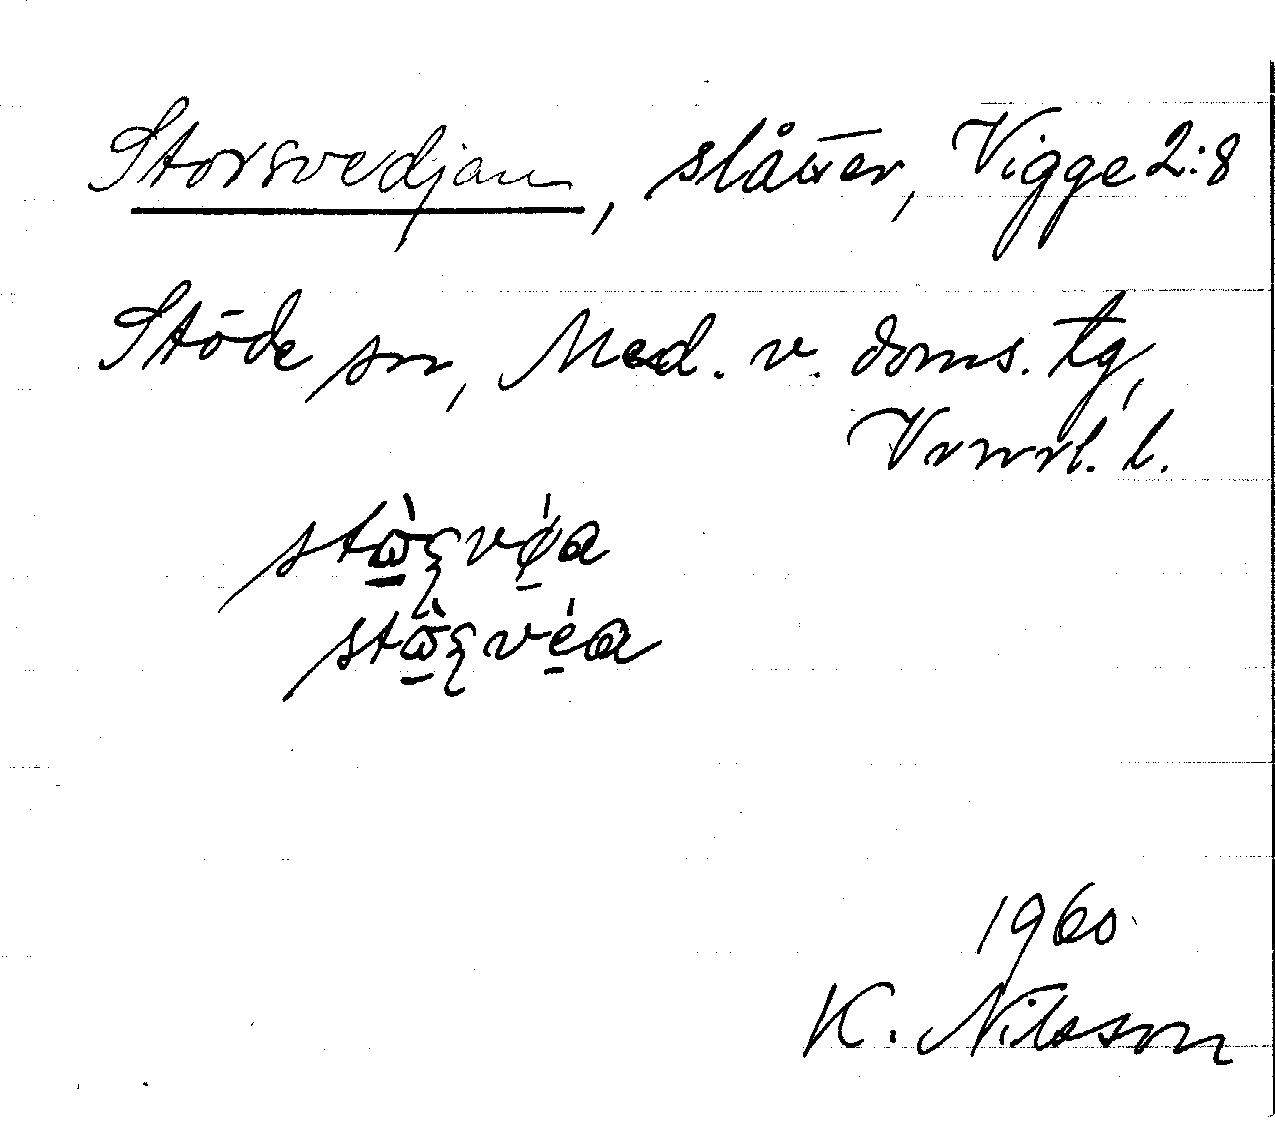 Storsvedjan, slåtter, Vigge 2:8
Stöde sn, Med. v. doms. tg,
Vrnrl. l.
1960
K. Nilsson